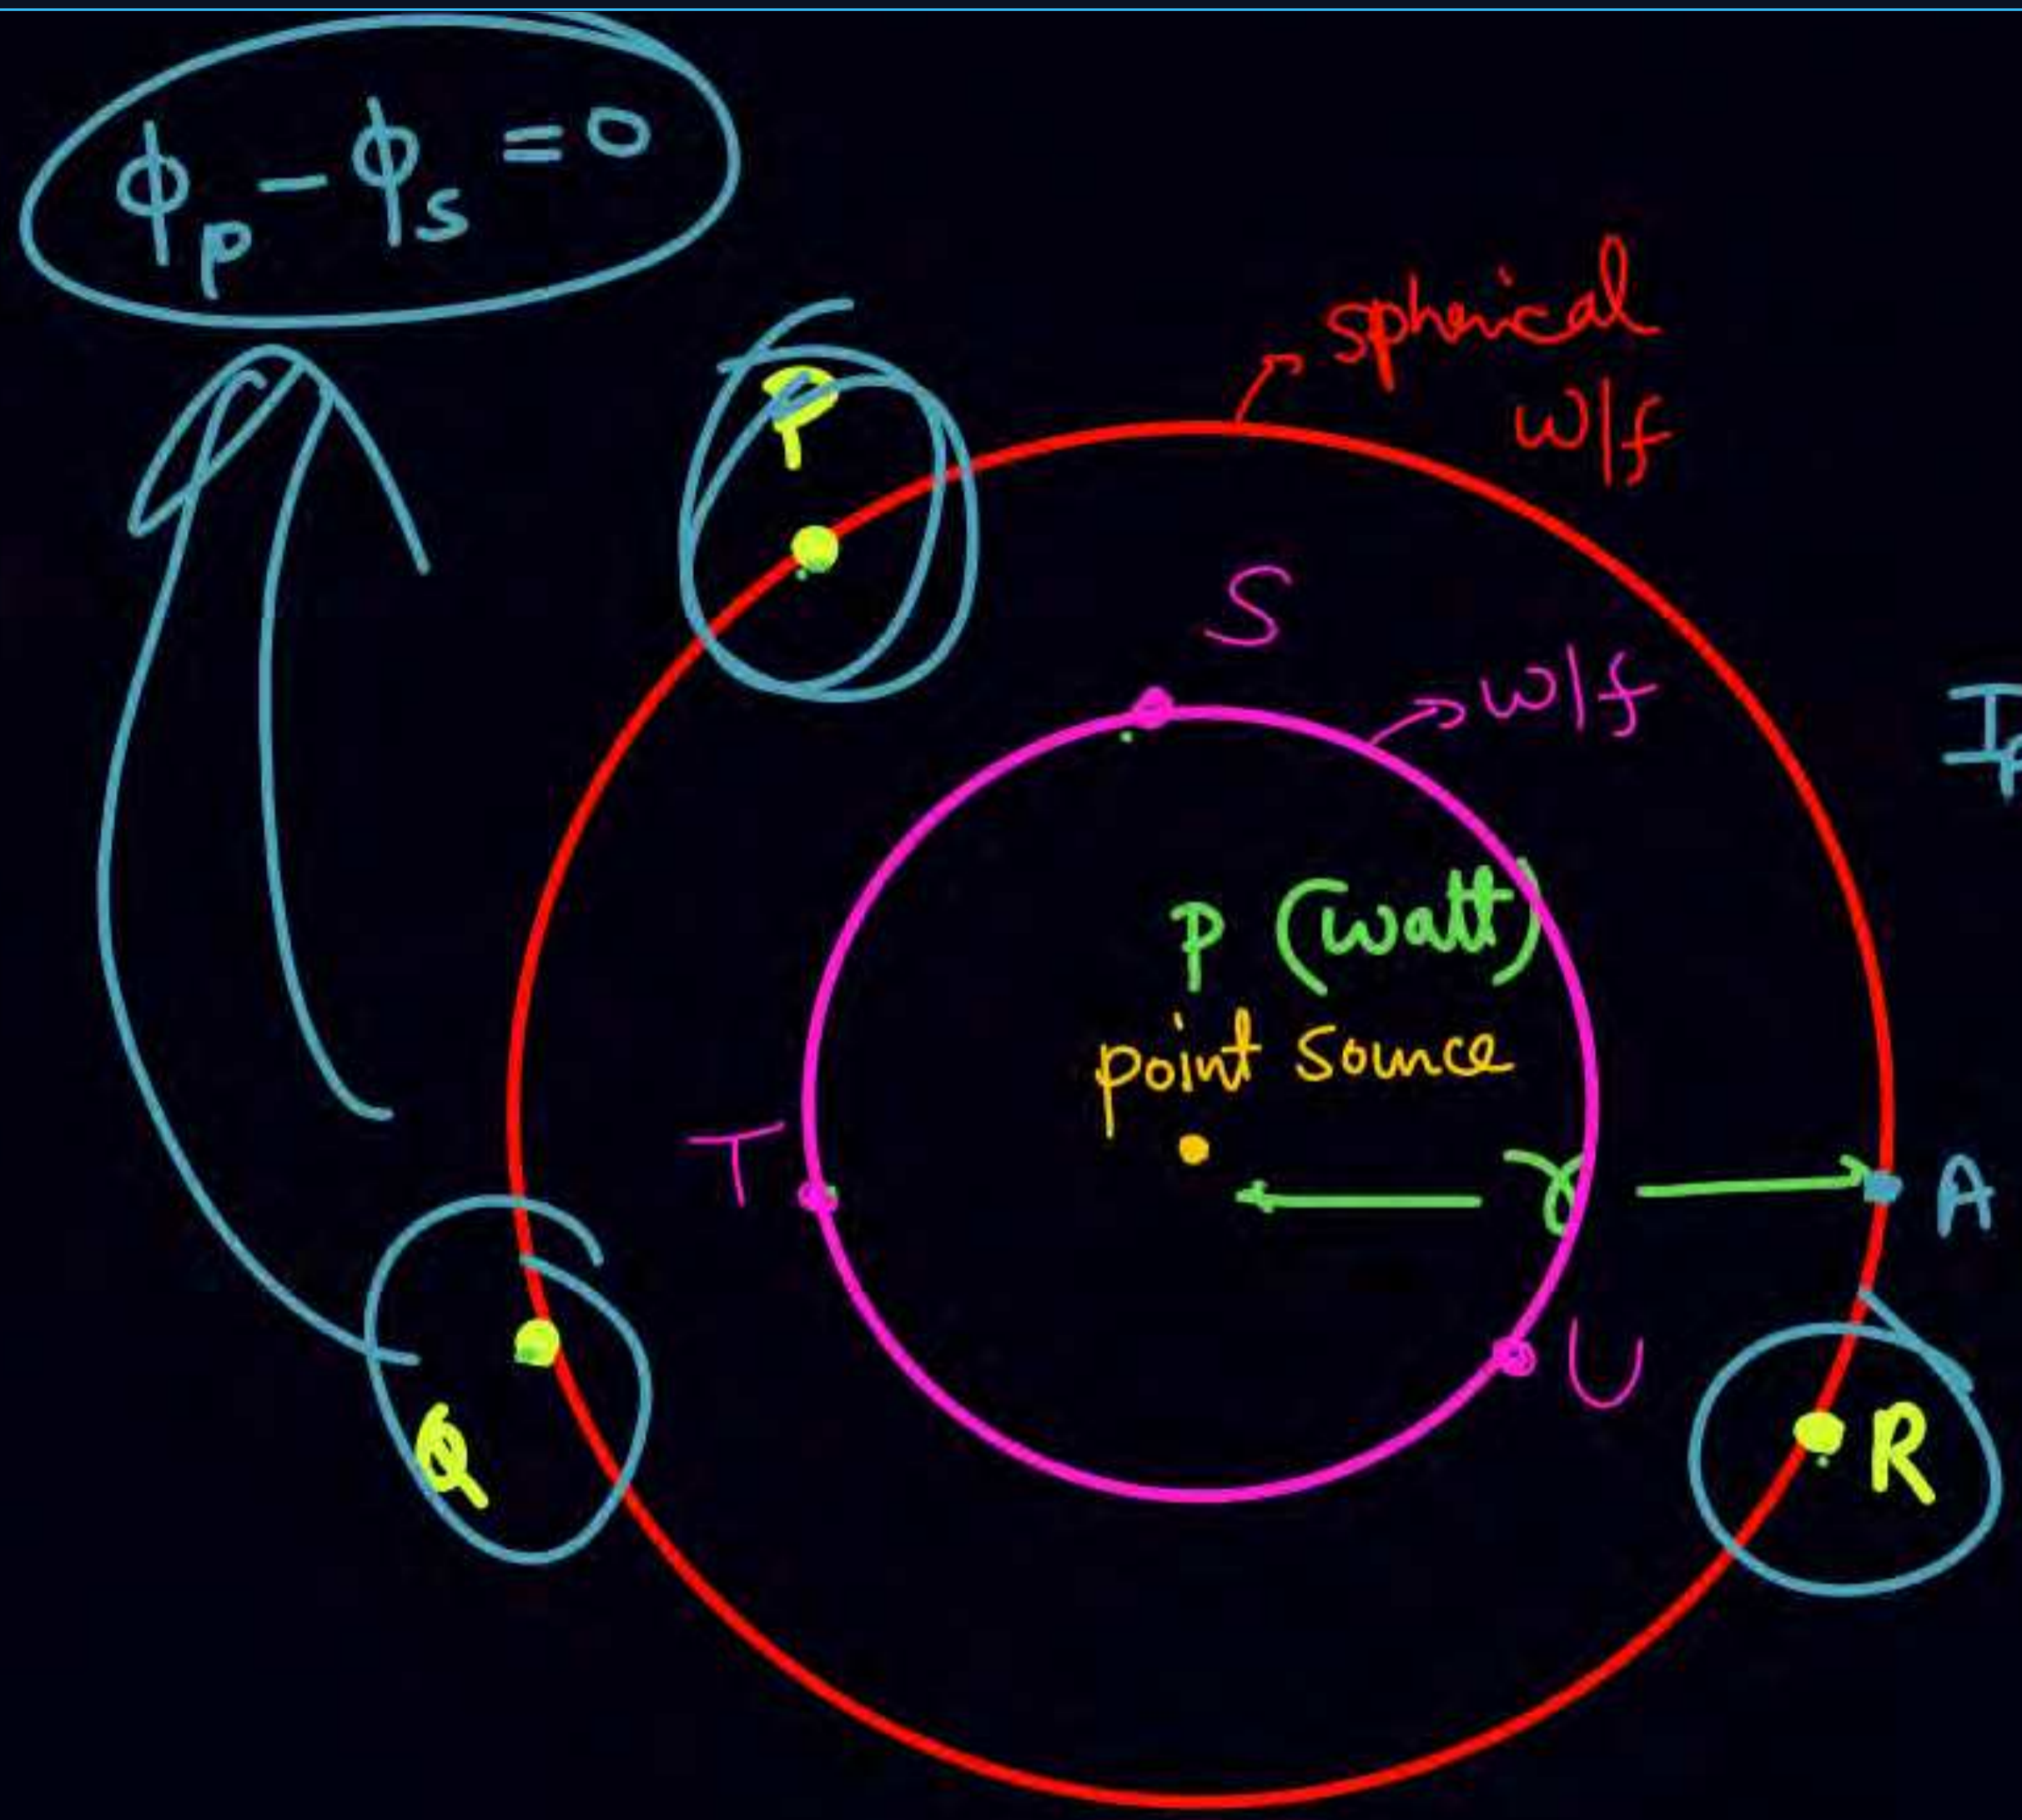 ϕ_p - ϕ_s = 0
spherical
w/f
P
S
w/f
P (watt)
point source
T
r
A
U
Q
R